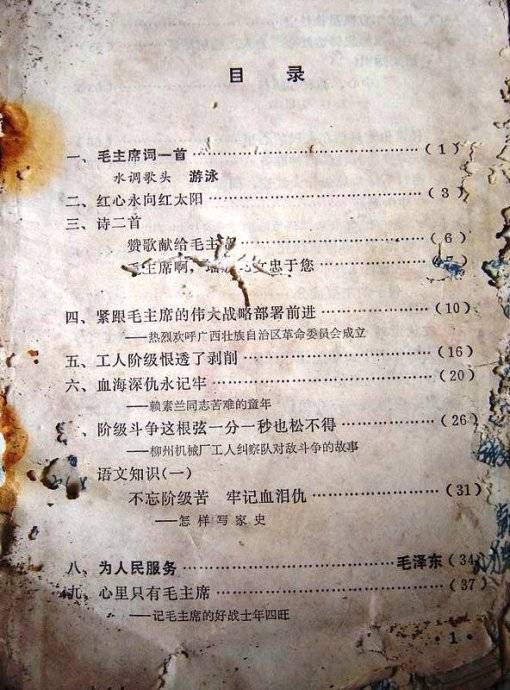 目录
一、毛主席词一首……………………………(1)
水调歌头 游泳
二、红心永向红太阳……………………………(3)
三、诗二首
赞歌献给毛主……………………………(6)
毛主席啊，忠于您
四、紧跟毛主席的伟大战略部署前进……………(10)
——热烈欢呼广西壮族自治区革命委员会成立
五、工人阶级恨透了剥削……………………(16)
六、血海深仇永记牢……………………………(20)
——赖素兰同志苦难的童年
、阶级斗争这根弦一分一秒也松不得…………(26)
——柳州机械厂工人纠察队对敌斗争的故事
语文知识(一)
不忘阶级苦 牢记血泪仇……………………(31)
——怎样写家史
八、为人民服务……………………………毛泽东(34)
九、心里只有毛主席……………………………(37)
——记毛主席的好战士年四旺
·1·